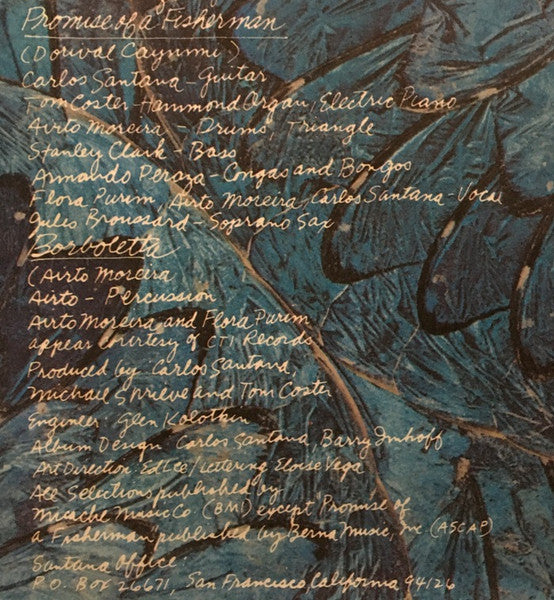 Promise of a Fisherman
(Dorival Caymmi)
Carlos Santana - Guitar
Tom Coster - Hammond Organ, Electric Piano
Airto Moreira - Drums, Triangle
Stanley Clark - Bass
Armando Peraza - Congas and Bongos
Flora Purim, Airto Moreira, Carlos Santana - Vocal
Jules Broussard - Soprano Sax
Borboletta
(Airto Moreira
Airto - Percussion
Airto Moreira and Flora Purim
appear courtesy of CTI Records
Produced by Carlos Santana,
Michael Shrieve and Tom Coster
Engineer: Glen Kolotkin
Album Design: Carlos Santana, Barry Imhoff
Art Direction: Ed Lee/Lettering, Eloise Vega
All Selections published by
Micache Music Co. (BMI) except "Promise of
a Fisherman" published by Berna Music, Inc (ASCAP)
Santana Office:
P.O. Box 26671, San Francisco, California 94126